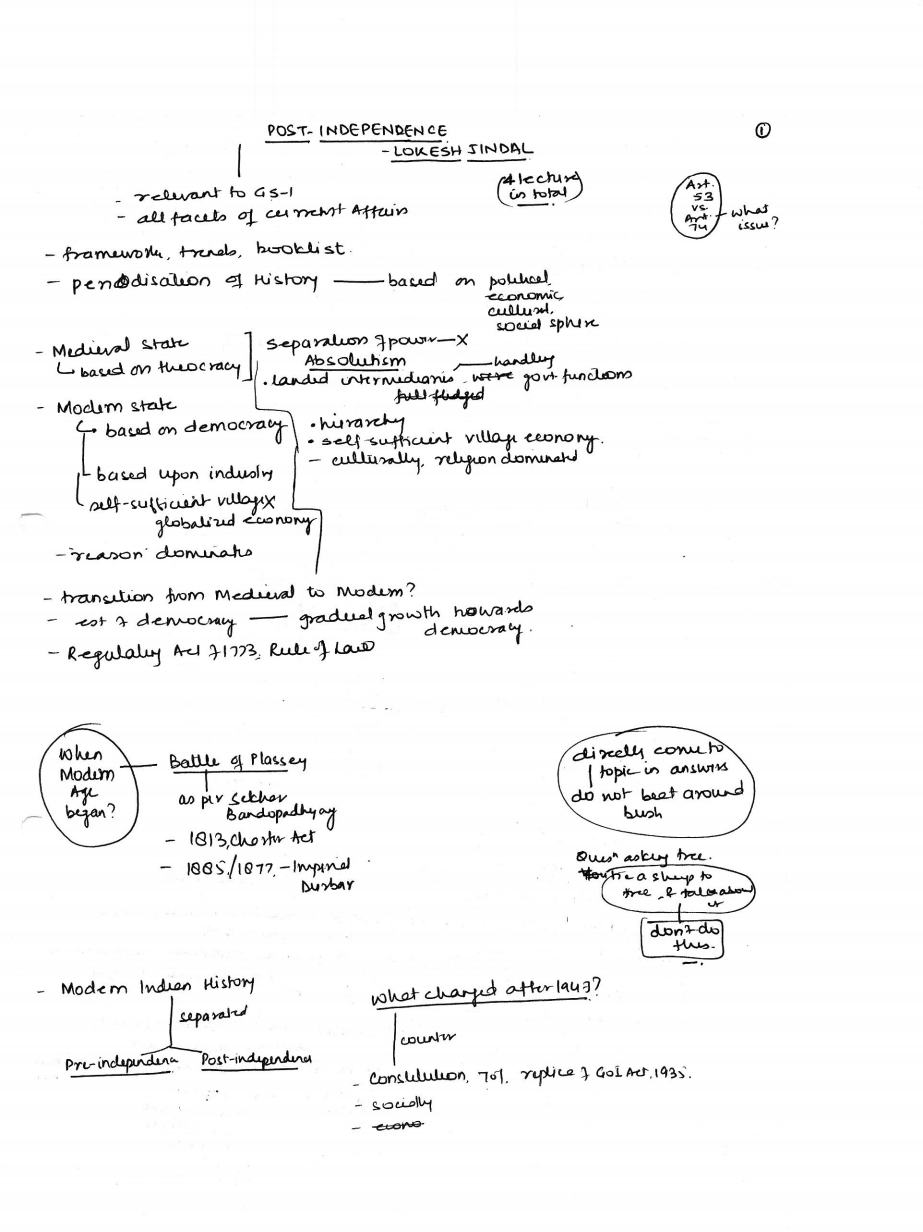 POST- INDEPENDENCE
①
- LOKESH JINDAL
- relevant to GS-1
- all facets of current Affairs
4 lecture
in total
Art.
53
vs.
Art.
74
- what
issue?
- framework, trends, booklist.
- periodisation of History — based on political,
economic,
cultural,
social sphere
- Medieval state
↳ based on theocracy
separation of power — X
Absolutism
handling
• landed intermediaries were govt functions
full fledged
- Modern state
↳ based on democracy
based upon industry
self-sufficient village X
globalized economy
- 'reason' dominates
• hierarchy
• self-sufficient village economy.
- culturally, religion dominated
- transition from Medieval to Modern?
- est of democracy — gradual growth towards
democracy.
- Regulating Act of 1773, Rule of Law
When
Modern
Age
began?
Battle of Plassey
as per Sekhar
Bandopadhyay
- 1813, Charter Act
- 1885/1877, - Imperial
Durbar
directly come to
topic in answers
do not beat around
bush
Quesn asking tree.
You tie a sheep to
tree & talk about
it
don't do
this.
- Modern Indian History
separated
Pre-independence
Post-independence
What changed after 1947?
counter
- Constitution, 70% replica of GoI Act, 1935.
- socially
- econo